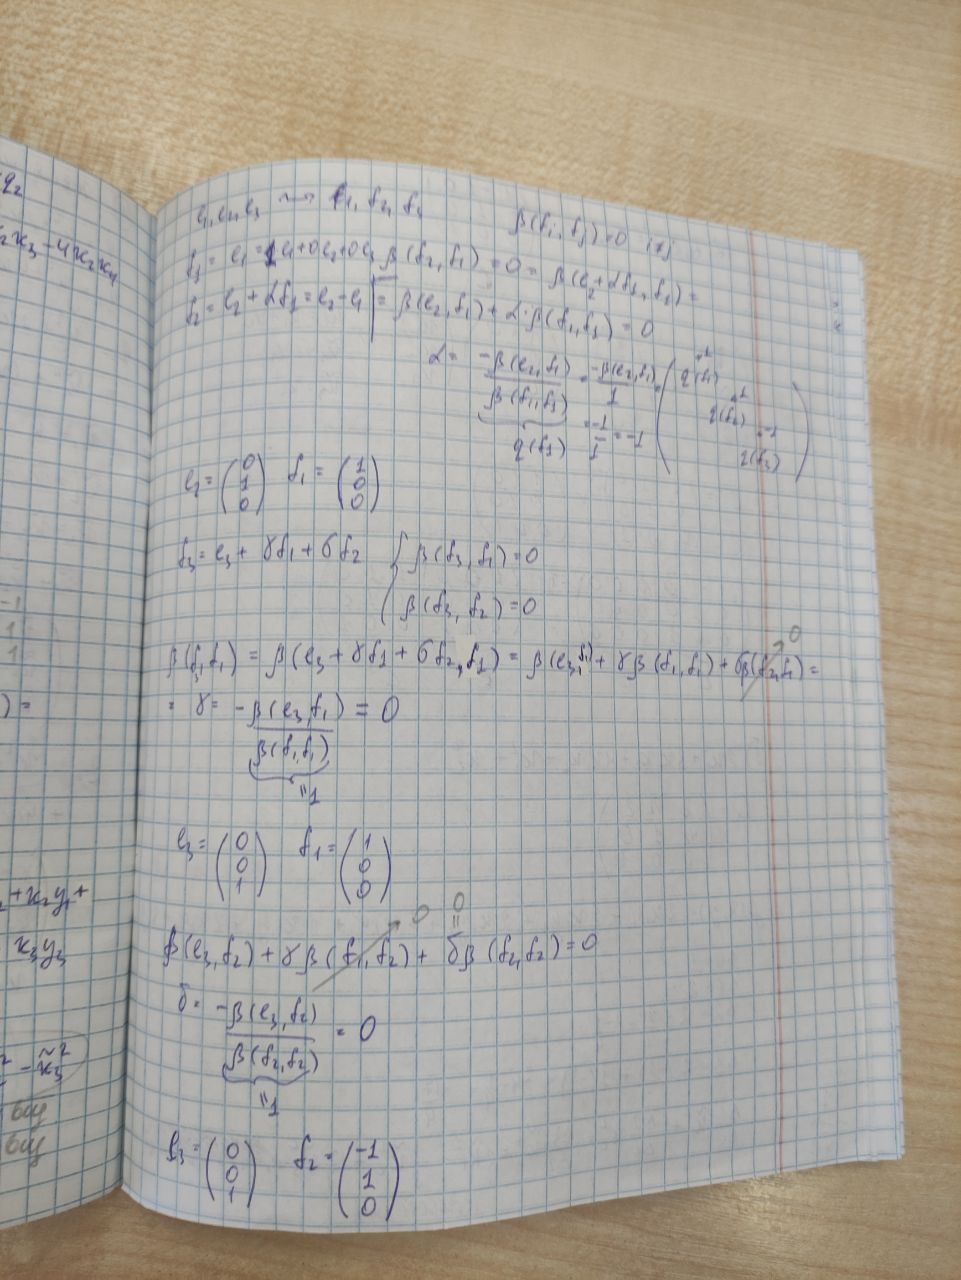 q₂
x₂x₃ - 4x₂x₄
-1
1
1
) =
+ x₂y₁ +
x₃y₃
- x̃₃²
вид
вид
e₁, e₂, e₃ ⇝ f₁, f₂, f₃ β(fᵢ, fⱼ) = 0 i≠j
f₁ = e₁ = 1e₁ + 0e₂ + 0e₃ β(f₂, f₁) = 0 = β(e₂ + αf₁, f₁) =
f₂ = e₂ + αf₁ = e₂ - e₁ = β(e₂, f₁) + α·β(f₁, f₁) = 0
α = -β(e₂, f₁) / β(f₁, f₁) = -β(e₂, f₁) / 1
q(f₁) = -1/1 = -1
(q(f₁) =1
q(f₂) =1
q(f₃) =-1)
e₂ = (0 1 0) f₁ = (1 0 0)
f₃ = e₃ + γf₁ + δf₂ { β(f₃, f₁) = 0
β(f₃, f₂) = 0
β(f₃, f₁) = β(e₃ + γf₁ + δf₂, f₁) = β(e₃, f₁) + γβ(f₁, f₁) + δβ(f₂, f₁) = 0
= γ = -β(e₃, f₁) / β(f₁, f₁) = 0
"1
e₃ = (0 0 1) f₁ = (1 0 0)
β(e₃, f₂) + γβ(f₁, f₂) 0 + δβ(f₂, f₂) = 0
0
δ = -β(e₃, f₂) / β(f₂, f₂) = 0
"1
e₃ = (0 0 1) f₂ = (-1 1 0)